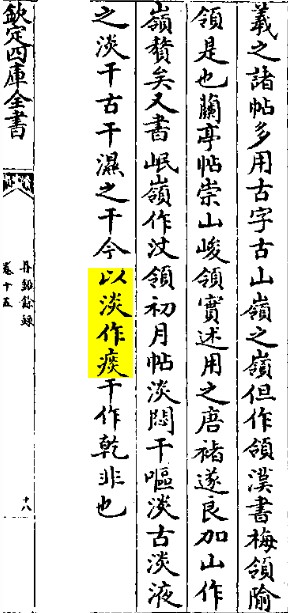 羲之諸帖多用古字古山嶺之嶺但作領漢書梅領隃
領是也蘭亭帖崇山峻領實述用之唐褚遂良加山作
嶺贅矣又書岷嶺作汶領初月帖淡悶干嘔淡古淡液
之淡干古干濕之干今以淡作痰干作乾非也
欽定四庫全書
丹鉛餘錄
卷十五
十八